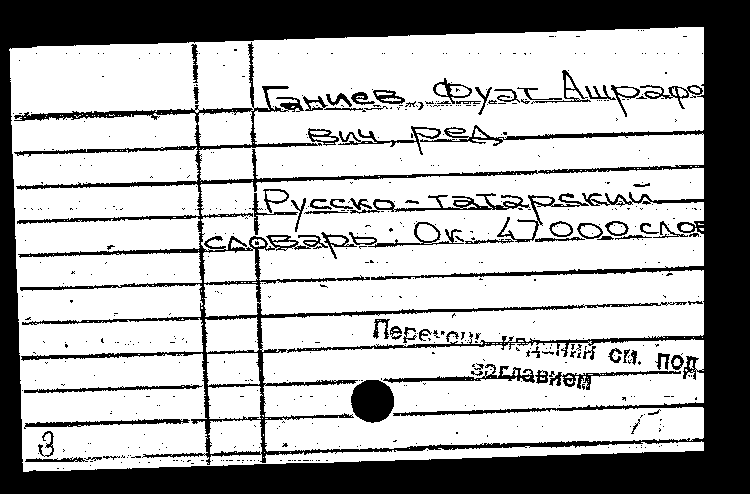 Ганиев, Фуат Ашрафо
вич, ред.
Русско-татарский
словарь: Ок. 47000 слов
Перечень изданий см. под
заглавием
З